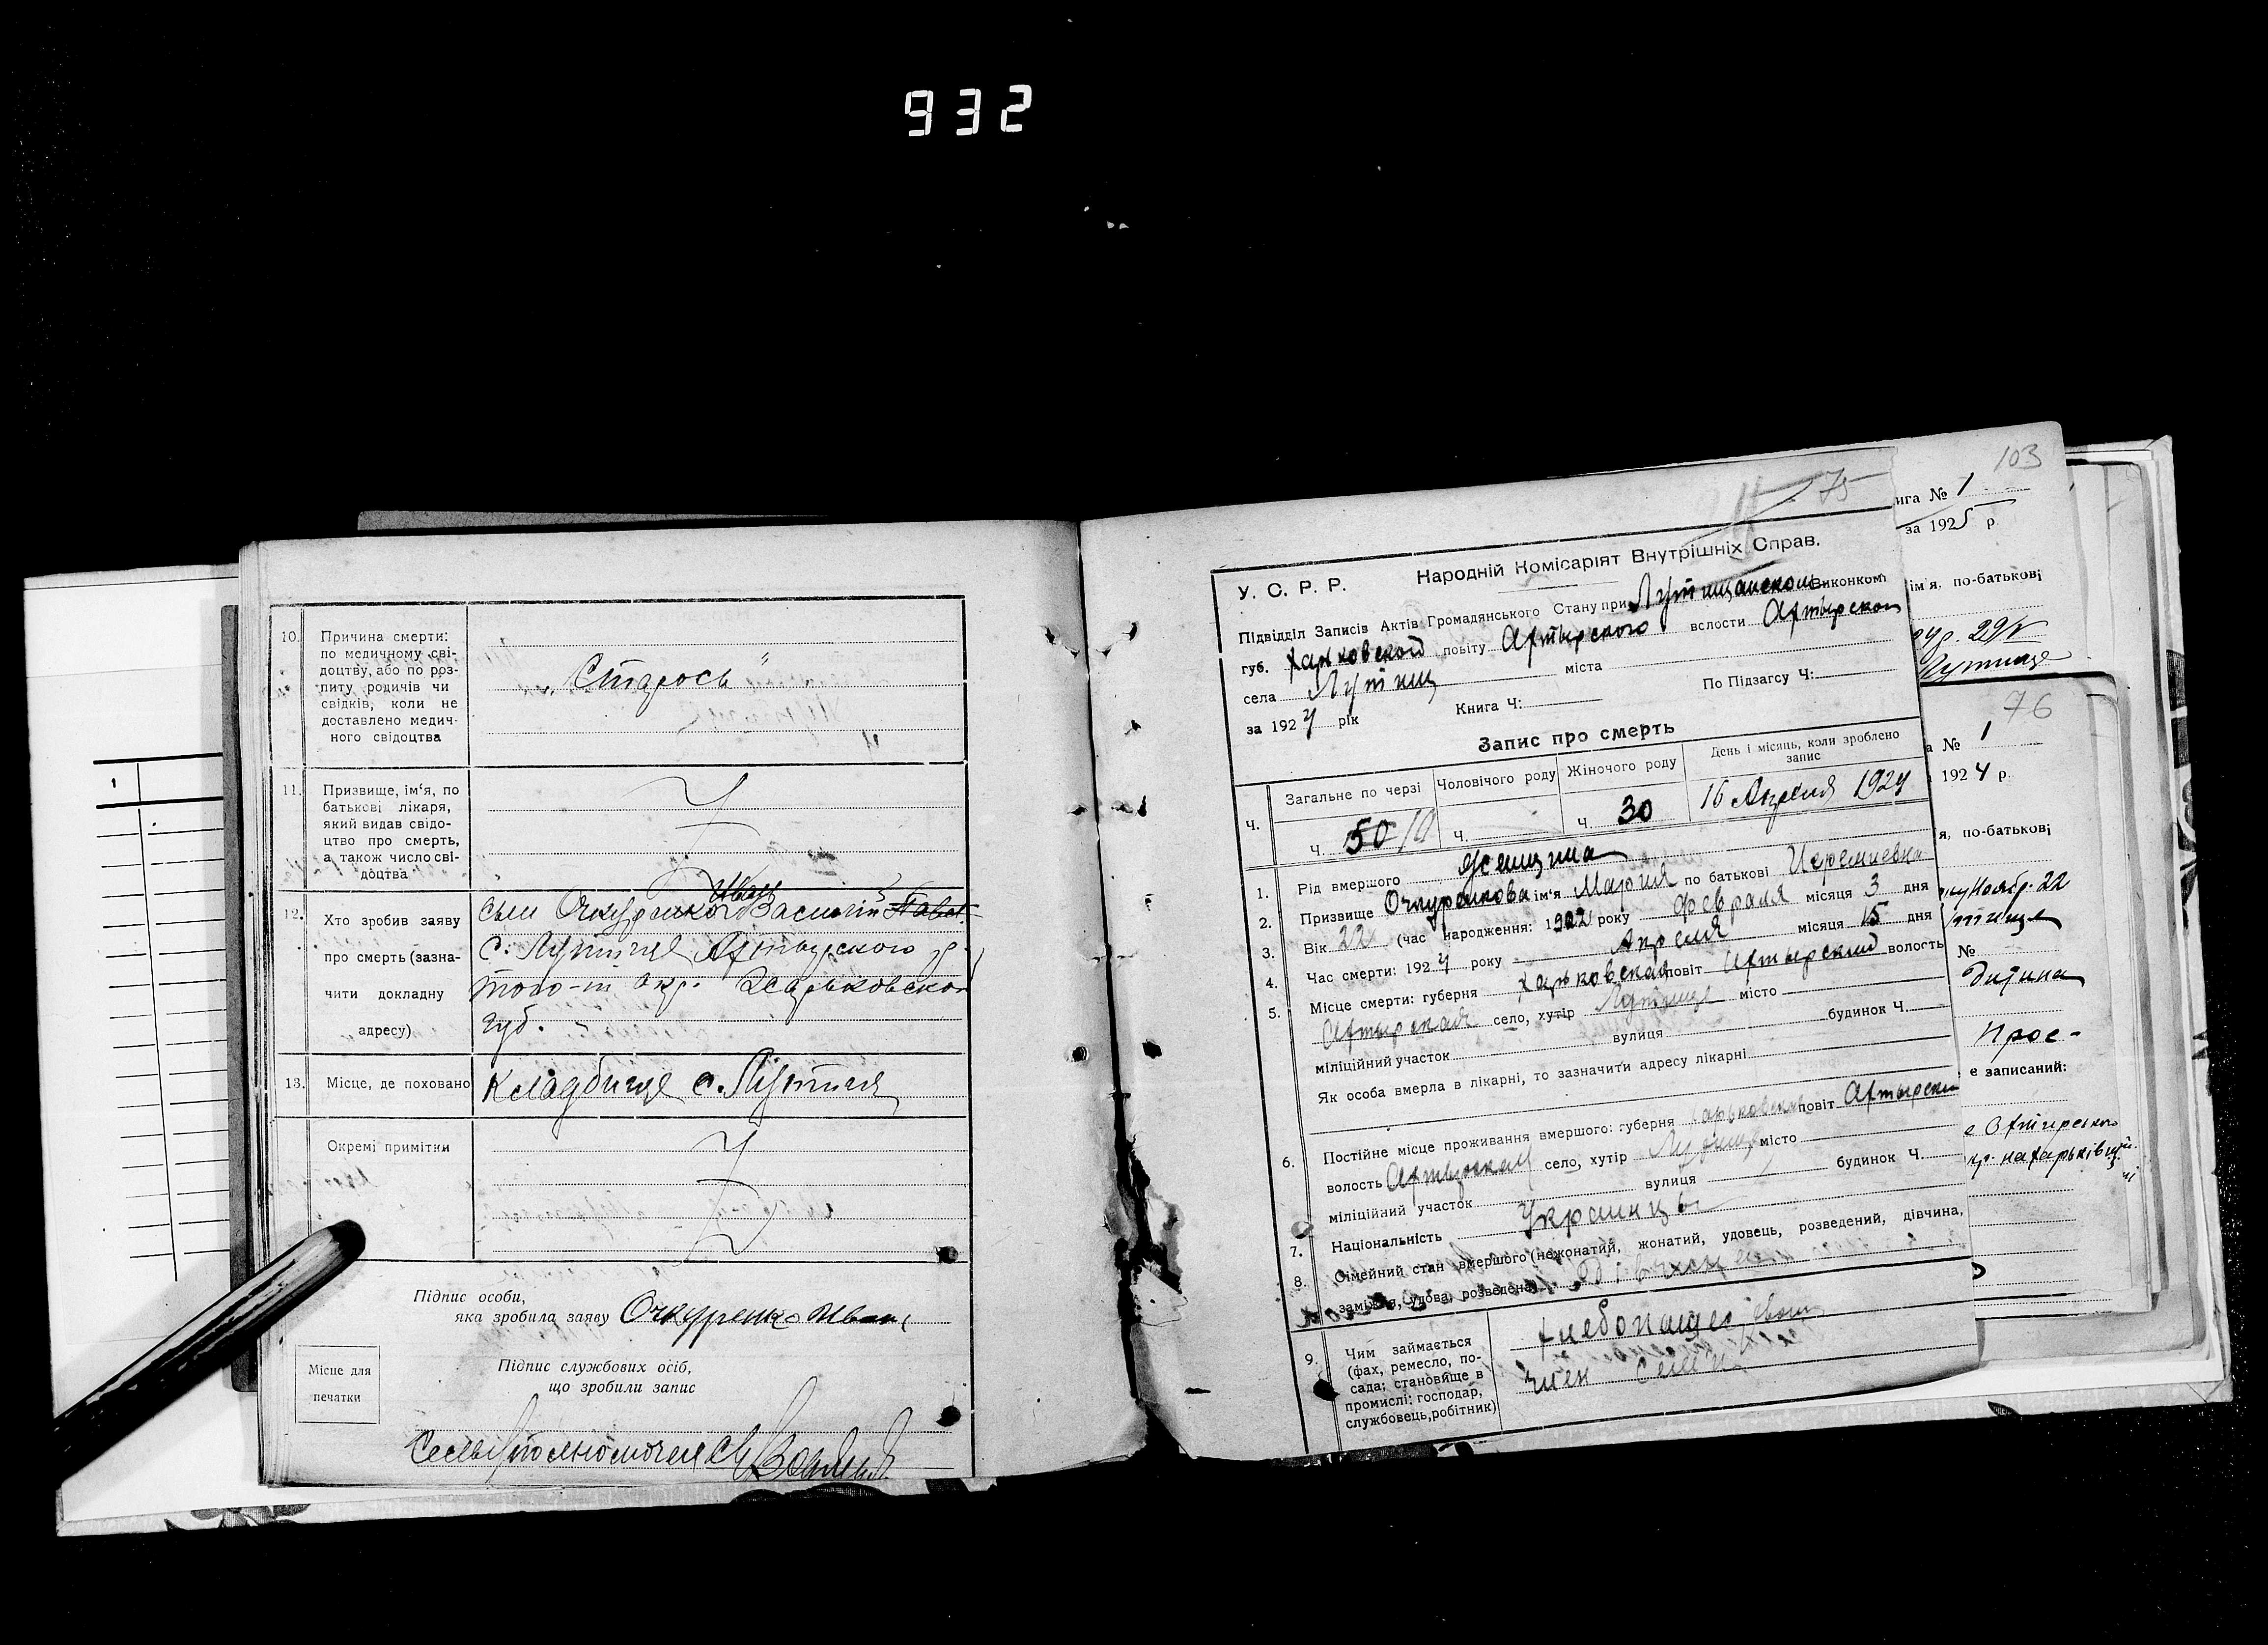 932
10.
Причина смерти:
по медичному сві-
доцтву, або по роз-
питу родичів чи
свідків, коли не
доставлено медич-
ного свідоцтва
„Старось"
11.
Призвище, ім'я, по
батькові лікаря,
який видав свідо-
цтво про смерть,
а також число сві-
доцтва
12.
Хто зробив заяву
про смерть (зазна-
чити докладну
адресу)
Иван
сын Очкуренко Василий
с. Лутища Ахтырского р.
того-ж окр. Харьковской
губ.
13.
Місце, де поховано
Кладбище с. Лутища
Окремі примітки
Підпис особи,
яка зробила заяву Очкуренко Иван
Місце для
печатки
Підпис службових осіб,
що зробили запис
103
75
У. С. Р. Р. Народній Комісаріят Внутрішніх Справ.
Підвідділ Записів Актів Громадянського Стану при Лутищанском Виконкомі
губ. Харковской повіту Ахтырского вслости Ахтырской
села Лутищ міста
за 1924 рік Книга Ч: По Підзагсу Ч:
Запис про смерть
Ч.
Загальне по черзі Чоловічого роду Жіночого роду День і місяць, коли зроблено
запис
Ч. 50 Ч. Ч. 30 16 Апреля 1924
1. Рід вмершого женщина
2. Призвище Очкуренкова ім'я Мария по батькові Иеремиевна
3. Вік 22 (час народження: 1902 року февраля місяця 3 дня
4. Час смерти: 1924 року Апреля місяця 15 дня
5. Місце смерти: губерня Харьковская повіт Ахтырский волость
Ахтырская село, хутір Лутища місто
міліційний участок вулиця будинок Ч.
Як особа вмерла в лікарні, то зазначити адресу лікарні
6. Постійне місце проживання вмершого: губерня повіт Ахтырский
волость Ахтырская село, хутір Лутища місто
міліційний участок вулиця будинок Ч.
7. Національність Украинцы
8. Сімейний стан вмершого (нежонатий, жонатий, удовець, розведений, дівчина,
заміжня, удова, розведена)
9.
Чим займається
(фах, ремесло, по-
сада; становище в
промислі: господар,
службовець, робітник)
хлебопашес
член семьи
ига № 1
за 1925 р
ім'я, по-батькові
76
а № 1
1924 р.
я, по-батькові
Ноябр. 22
№
дитина
Прос-
е записаний: